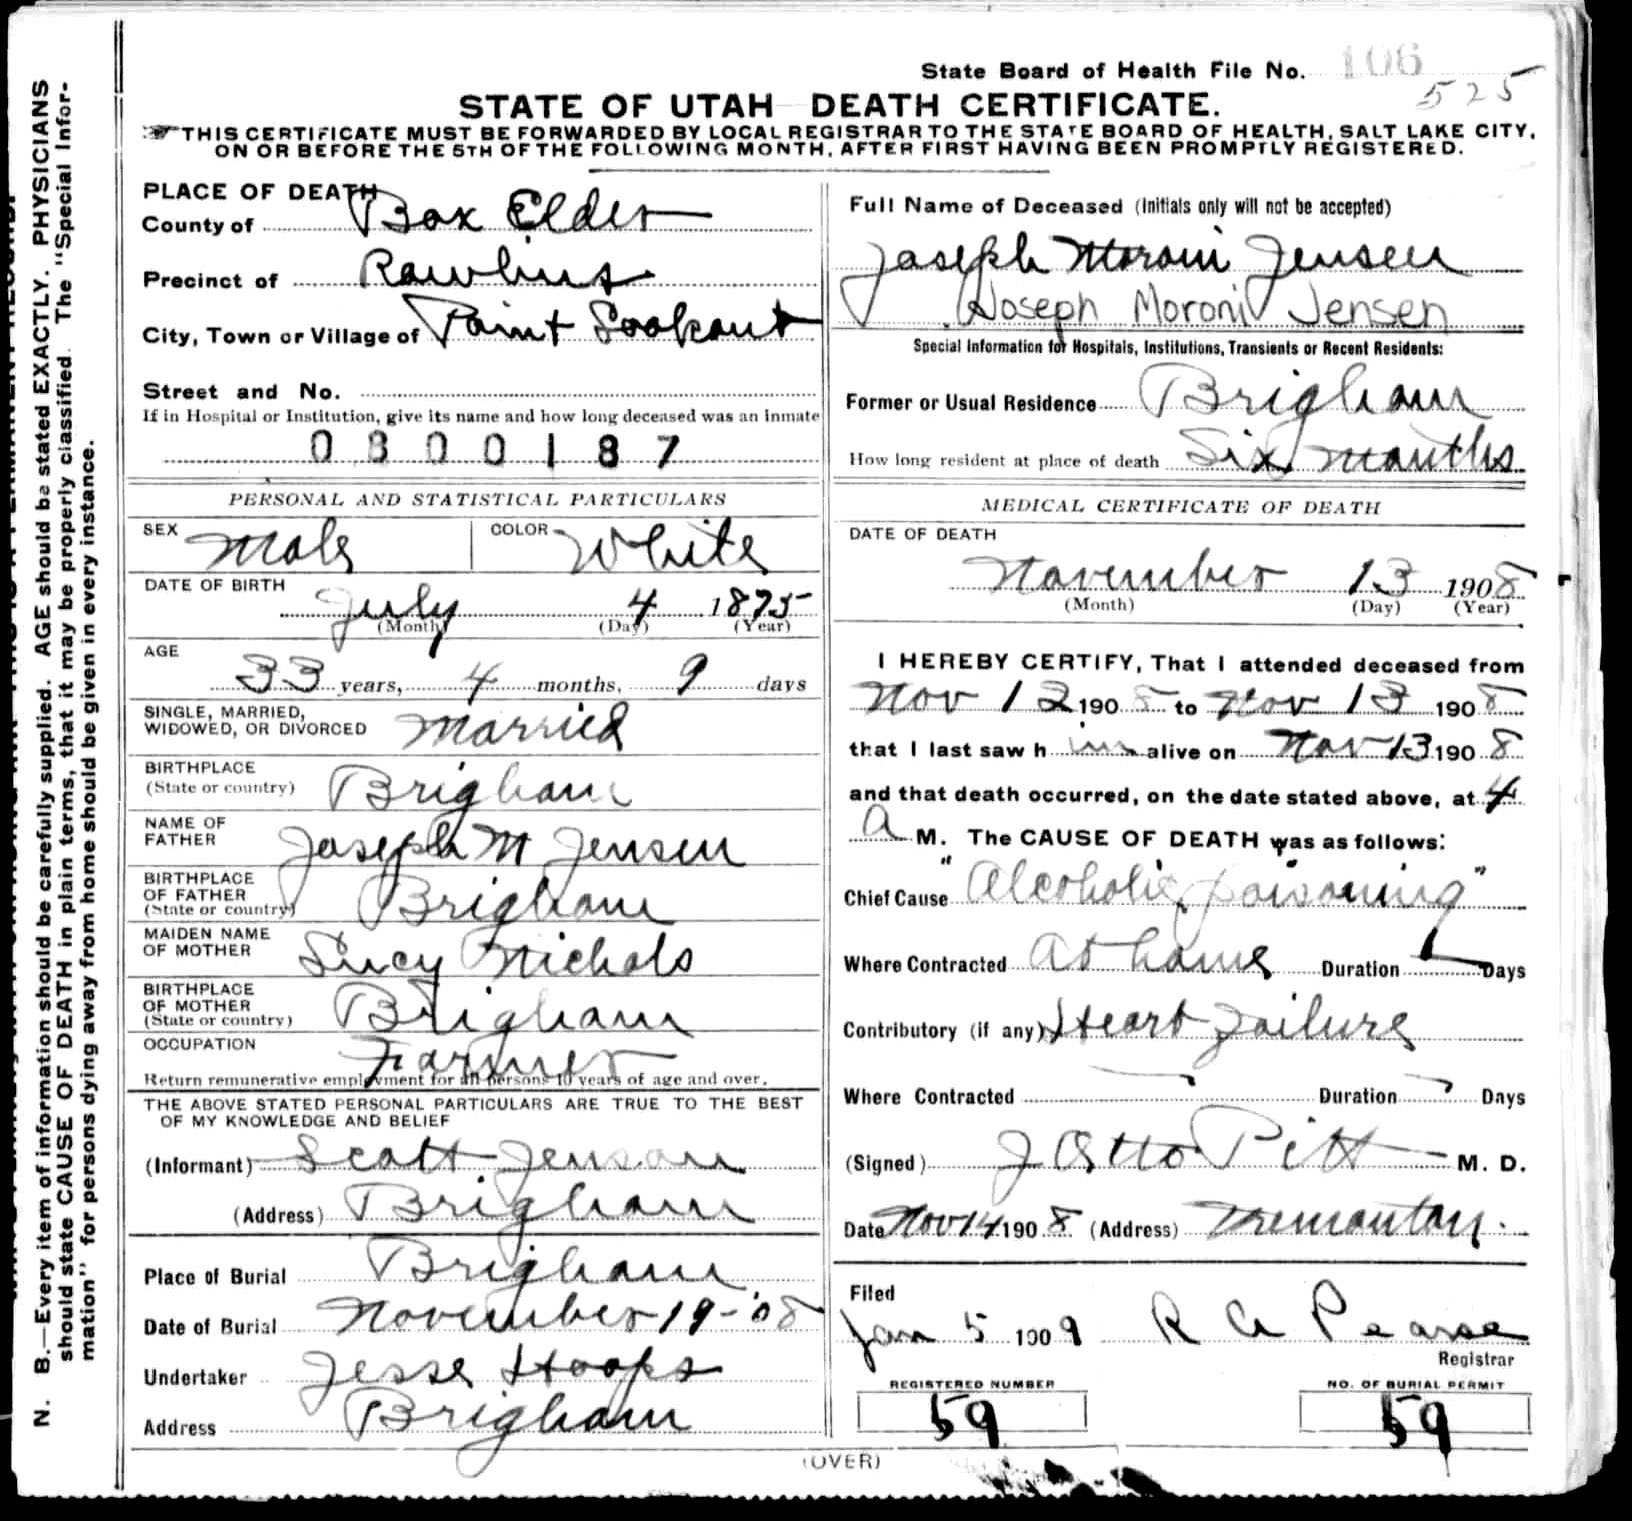 State Board of Health File No. 106
525
STATE OF UTAH DEATH CERTIFICATE.
THIS CERTIFICATE MUST BE FORWARDED BY LOCAL REGISTRAR TO THE STATE BOARD OF HEALTH, SALT LAKE CITY,
ON OR BEFORE THE 5TH OF THE FOLLOWING MONTH, AFTER FIRST HAVING BEEN PROMPTLY REGISTERED.
PLACE OF DEATH
County of Box Elder
Precinct of Rawlins
City, Town or Village of Point Lookout
Street and No.
If in Hospital or Institution, give its name and how long deceased was an inmate
0300187
PERSONAL AND STATISTICAL PARTICULARS
SEX Male COLOR White
DATE OF BIRTH
July 4 1875
(Month) (Day) (Year)
AGE
33 years, 4 months, 9 days
SINGLE, MARRIED,
WIDOWED, OR DIVORCED Married
BIRTHPLACE
(State or country) Brigham
NAME OF
FATHER Joseph M Jensen
BIRTHPLACE
OF FATHER
(State or country) Brigham
MAIDEN NAME
OF MOTHER Lucy Nichols
BIRTHPLACE
OF MOTHER
(State or country) Brigham
OCCUPATION Farmer
Return remunerative employment for all persons 10 years of age and over.
THE ABOVE STATED PERSONAL PARTICULARS ARE TRUE TO THE BEST
OF MY KNOWLEDGE AND BELIEF
(Informant) Scott Jenson
(Address) Brigham
Place of Burial Brigham
Date of Burial November 19-'08
Undertaker Jesse Hoops
Address Brigham
Full Name of Deceased (Initials only will not be accepted)
Joseph Moroni Jensen
Joseph Moroni Jensen
Special Information for Hospitals, Institutions, Transients or Recent Residents:
Former or Usual Residence Brigham
How long resident at place of death Six months
MEDICAL CERTIFICATE OF DEATH
DATE OF DEATH
November 13 1908
(Month) (Day) (Year)
I HEREBY CERTIFY, That I attended deceased from
Nov 12 1908 to Nov 13 1908
that I last saw him alive on Nov 13 1908
and that death occurred, on the date stated above, at 4
a M. The CAUSE OF DEATH was as follows:
Chief Cause "Alcoholic poisoning"
Where Contracted At home Duration Days
Contributory (if any) Heart failure
Where Contracted Duration ? Days
(Signed) J Otto Pitt M. D.
Date Nov 14 1908 (Address) Tremonton.
Filed
Jan 5 1909 R A Pearse
Registrar
REGISTERED NUMBER
59
NO. OF BURIAL PERMIT
59
(OVER)
N. B.—Every item of information should be carefully supplied. AGE should be stated EXACTLY. PHYSICIANS
should state CAUSE OF DEATH in plain terms, that it may be properly classified. The "Special Infor-
mation" for persons dying away from home should be given in every instance.